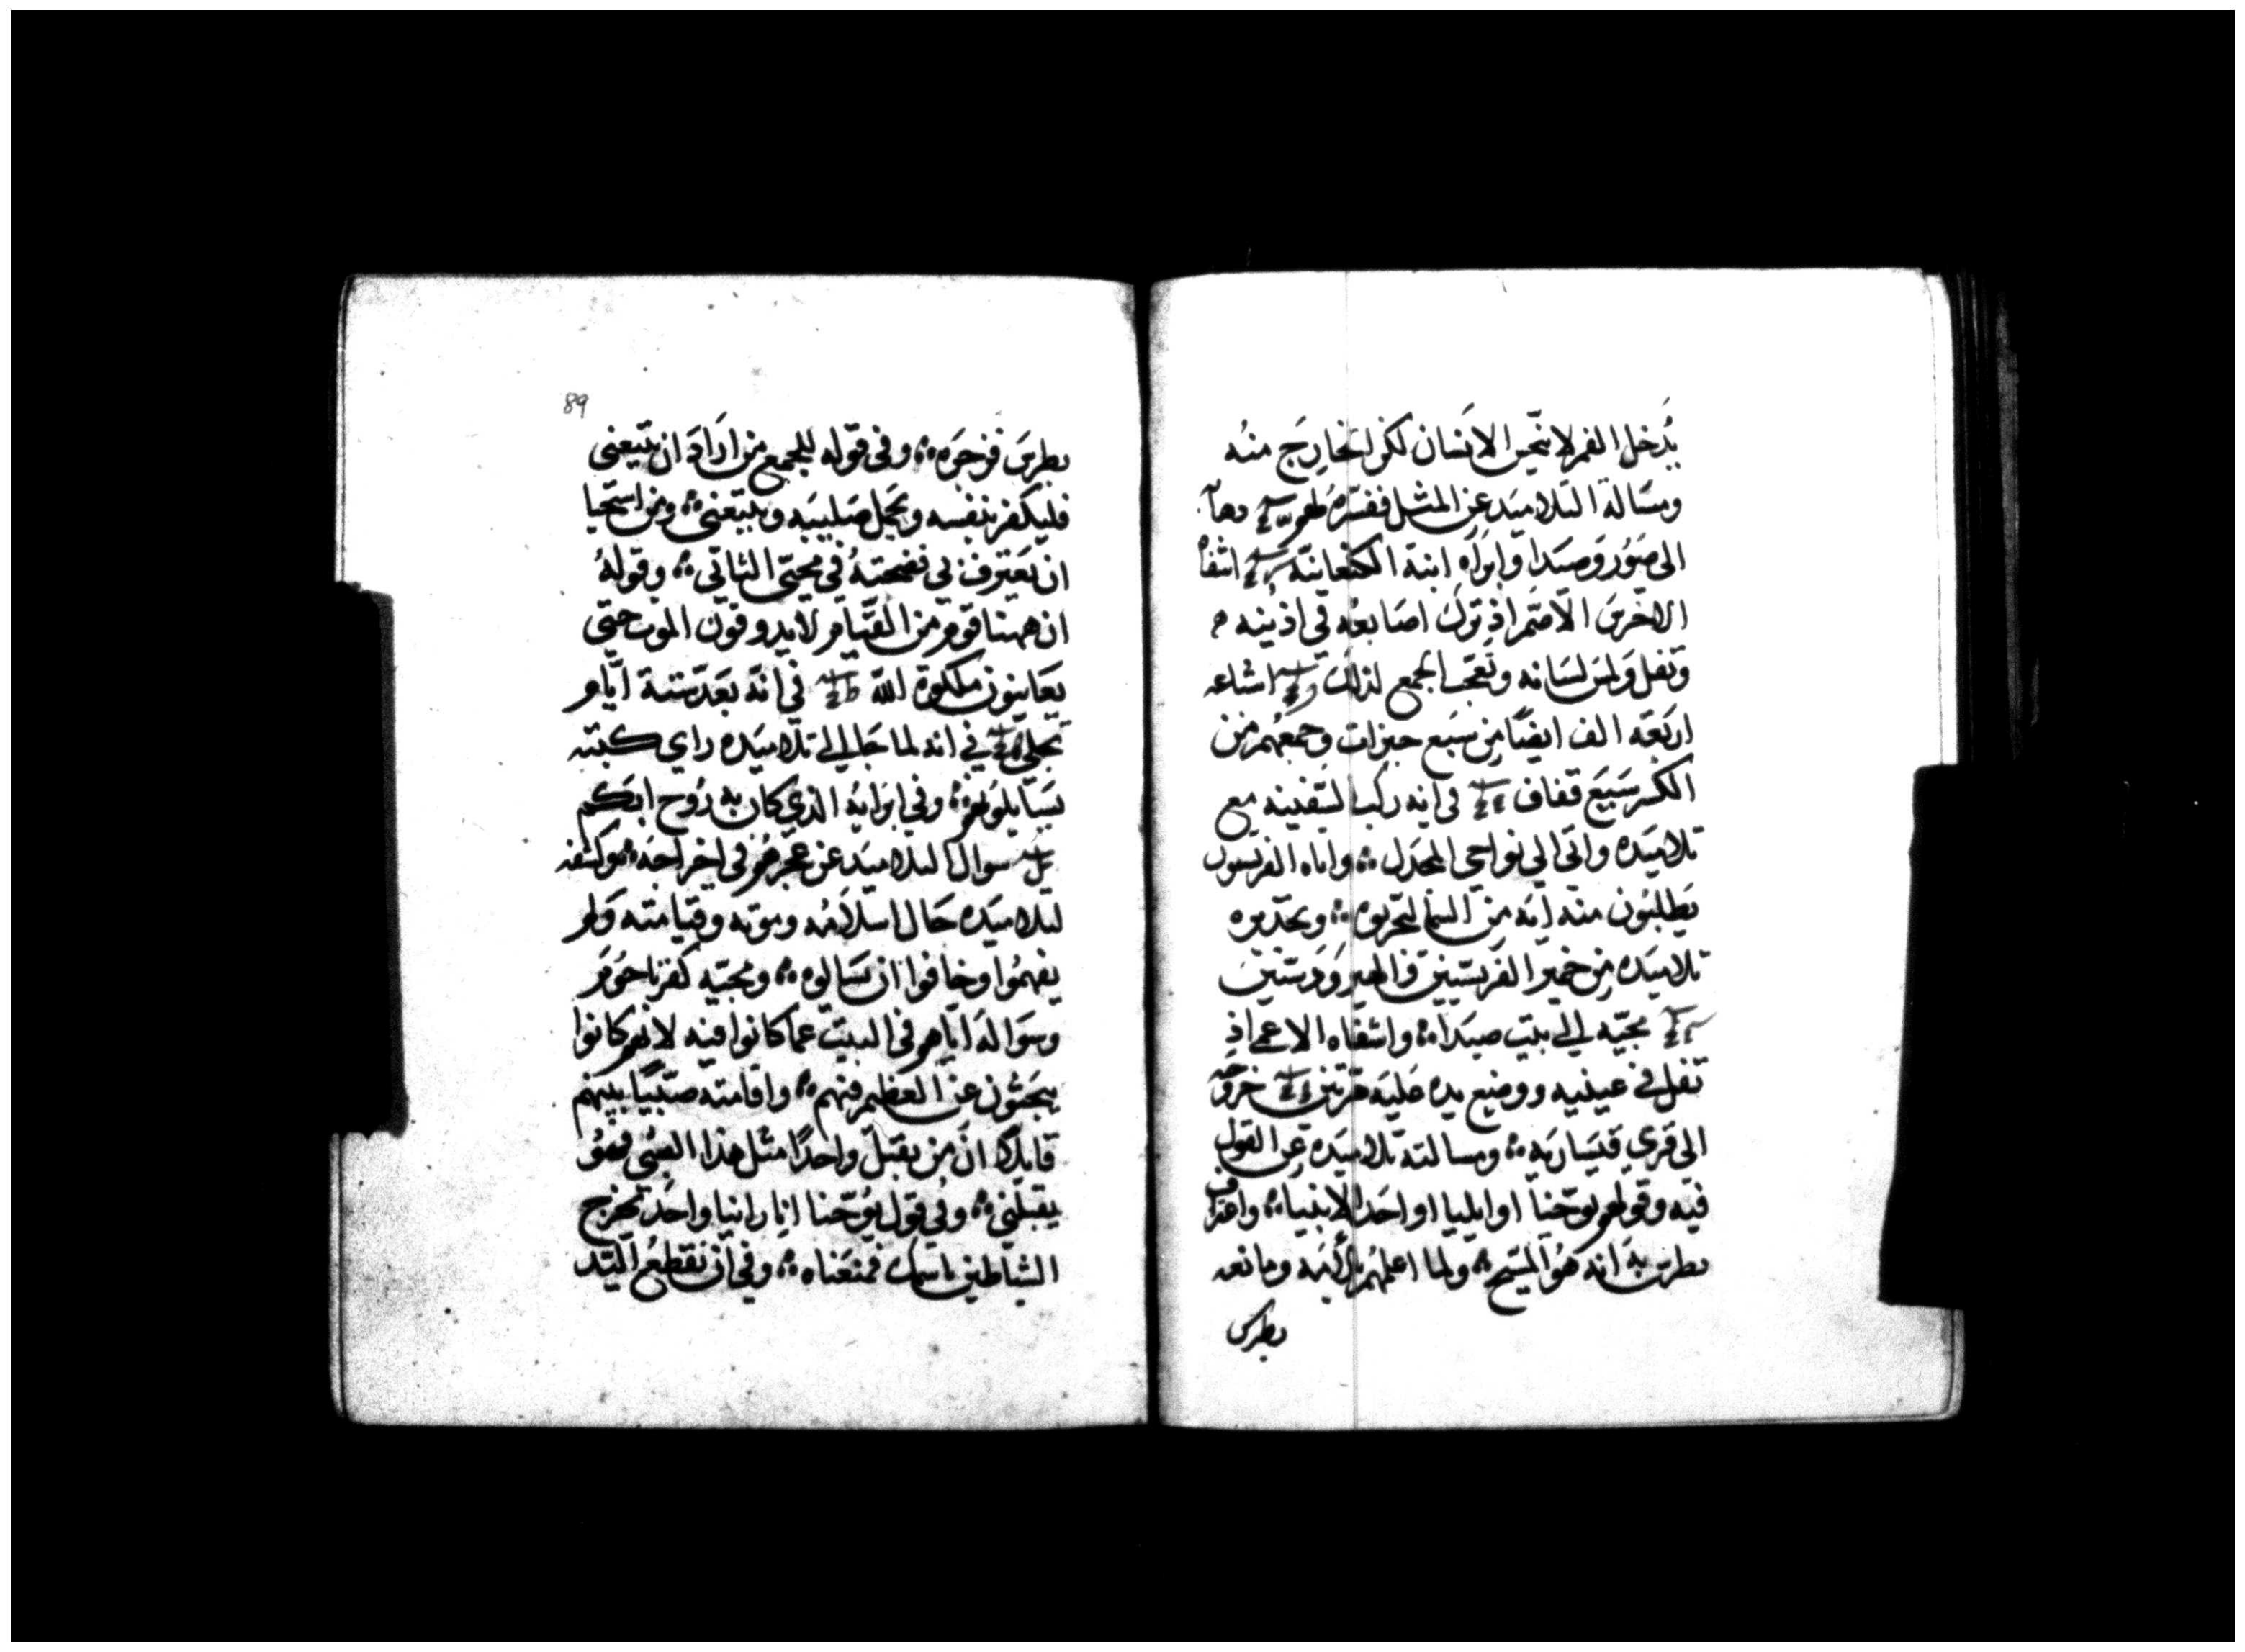 يدخل الفم لا ينجس الانسان لكن الخارج منه
ومسالة التلاميد عن المثل ففسره لهم
الى صور وصيدا وابراه ابنة الكنعانية اشفاه
الاخرس الاصم اذ ترك اصابعه في اذنيه
وتفل ولمس لسانه وتعجب الجمع لذلك اشباعه
اربعة الف ايضا من سبع خبزات وجمعهم من
الكسر سبع قفاف في انه ركب السفينه مع
تلاميده واتى الى نواحي المجدل ۞ واتاه الفريسيون
يطلبون منه ايه من السما ليجربوه ۞ وتحديره
تلاميده من خمير الفريسيين والهيرودسيين
مجيه الى بيت صيدا ۞ واشفاه الاعمى اذ
تفل في عينيه ووضع يده عليه مرتين خروجه
الى قري قيساريه ۞ ومسالته تلاميده عن القول
فيه وقولهم يوحنا او ايليا او احد الانبيا ۞ واعتراف
بطرس به انه هو المسيح ۞ ولما اعلمهم بالامه ومانعه
بطرس
89
بطرس فزجره ۞ وفي قوله للجمع من اراد ان يتبعني
فليكفر بنفسه ويحمل صليبه ويتبعني ۞ ومن استحيا
ان يعترف بي فضحته في مجيي الثاني ۞ وقوله
ان ههنا قوم من القيام لا يدوقون الموت حتى
يعاينون ملكوة الله في انه بعد ستة ايام
تجلى في انه لما جا الى تلاميده راي كتبته
يسايلونهم ۞ وفي ابرايه الذي كان به روح ابكم
سوال التلاميد عن عجزهم في اخراجه ۞ وكشفه
لتلاميده حال اسلامه وموته وقيامته ولم
يفهموا وخافوا ان يسالوه ۞ ومجيه كفرناحوم
وسواله اياهم في البيت عما كانوا فيه لانهم كانوا
يبحثون عن العظيم فيهم ۞ واقامته صبيا بينهم
قايلا ان من يقبل واحدا مثل هذا الصبي فهو
يقبلني ۞ وفي قول يوحنا انا راينا واحد يخرج
الشياطين باسمك فمنعناه ۞ وفي ان نقطع اليد